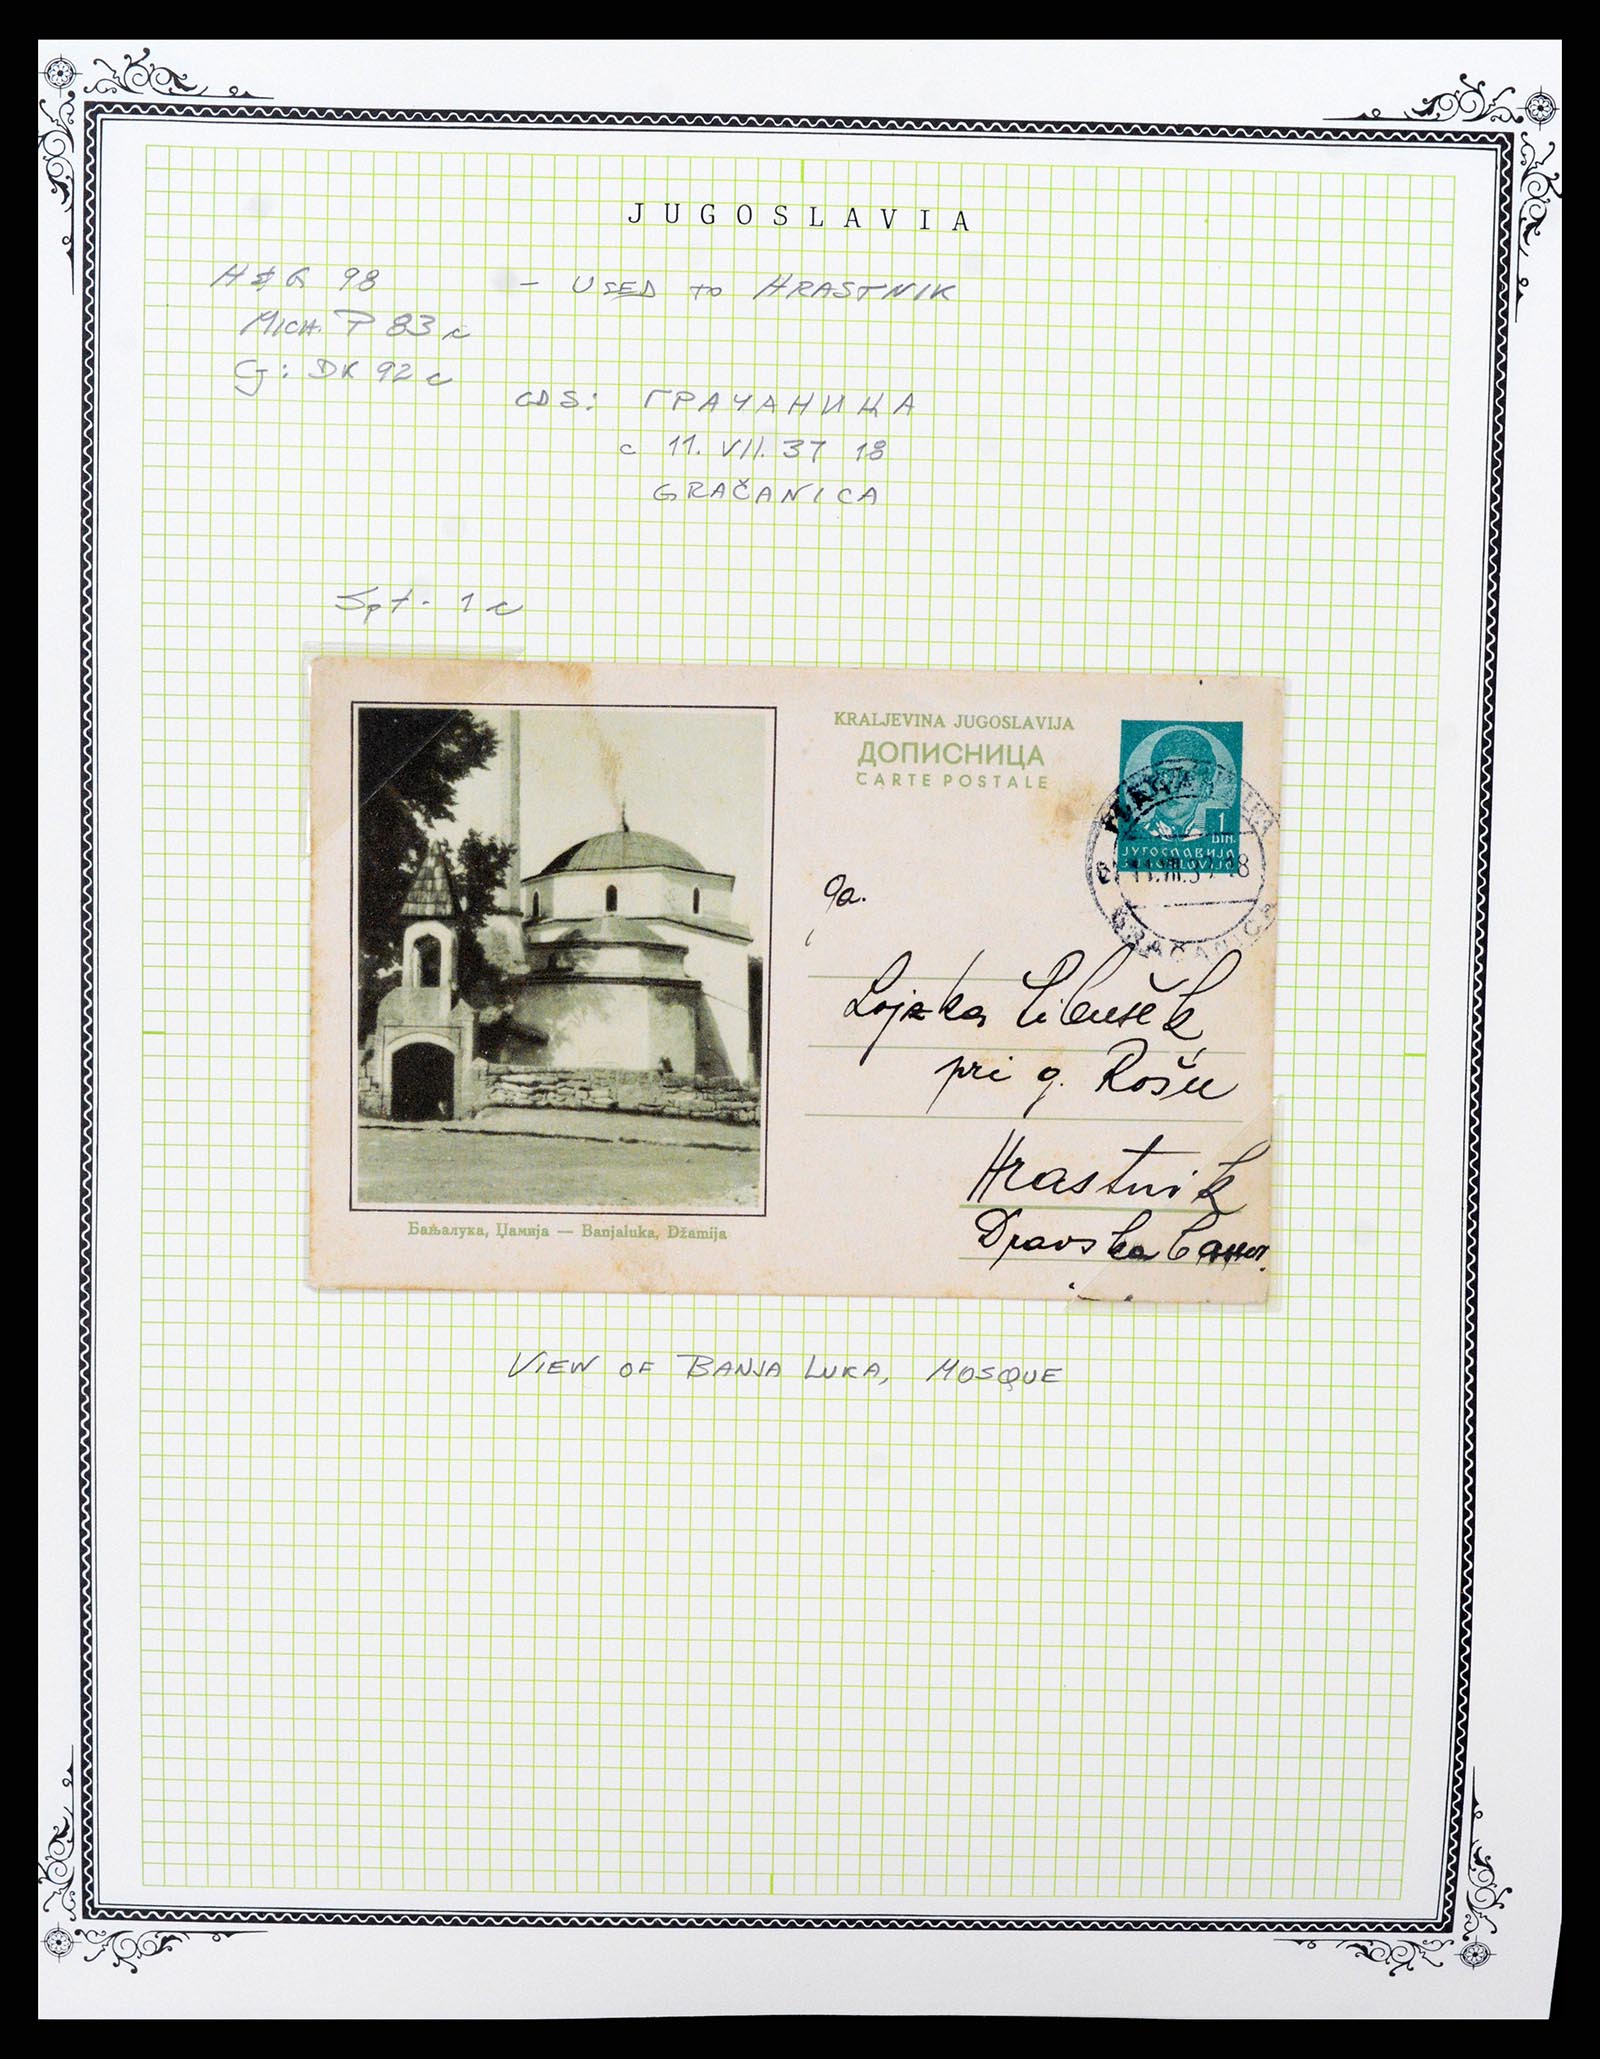 JUGOSLAVIA
H & G 98 - USED TO HRASTNIK
MICH. P 83 c
G: DK 92 c
CDS: ГРАЧАНИЦА
c 11. VII. 37 18
GRAČANICA
1 c
KRALJEVINA JUGOSLAVIJA
ДОПИСНИЦА
CARTE POSTALE
1
DIN.
ЈУГОСЛАВИЈА
11.VII.37 18
GRAČANICA
Ga.
Lojzka
pri g. Rošu
Hrastnik
Dravska
Бањалука, Џамија — Banjaluka, Džamija
VIEW OF BANJA LUKA, MOSQUE